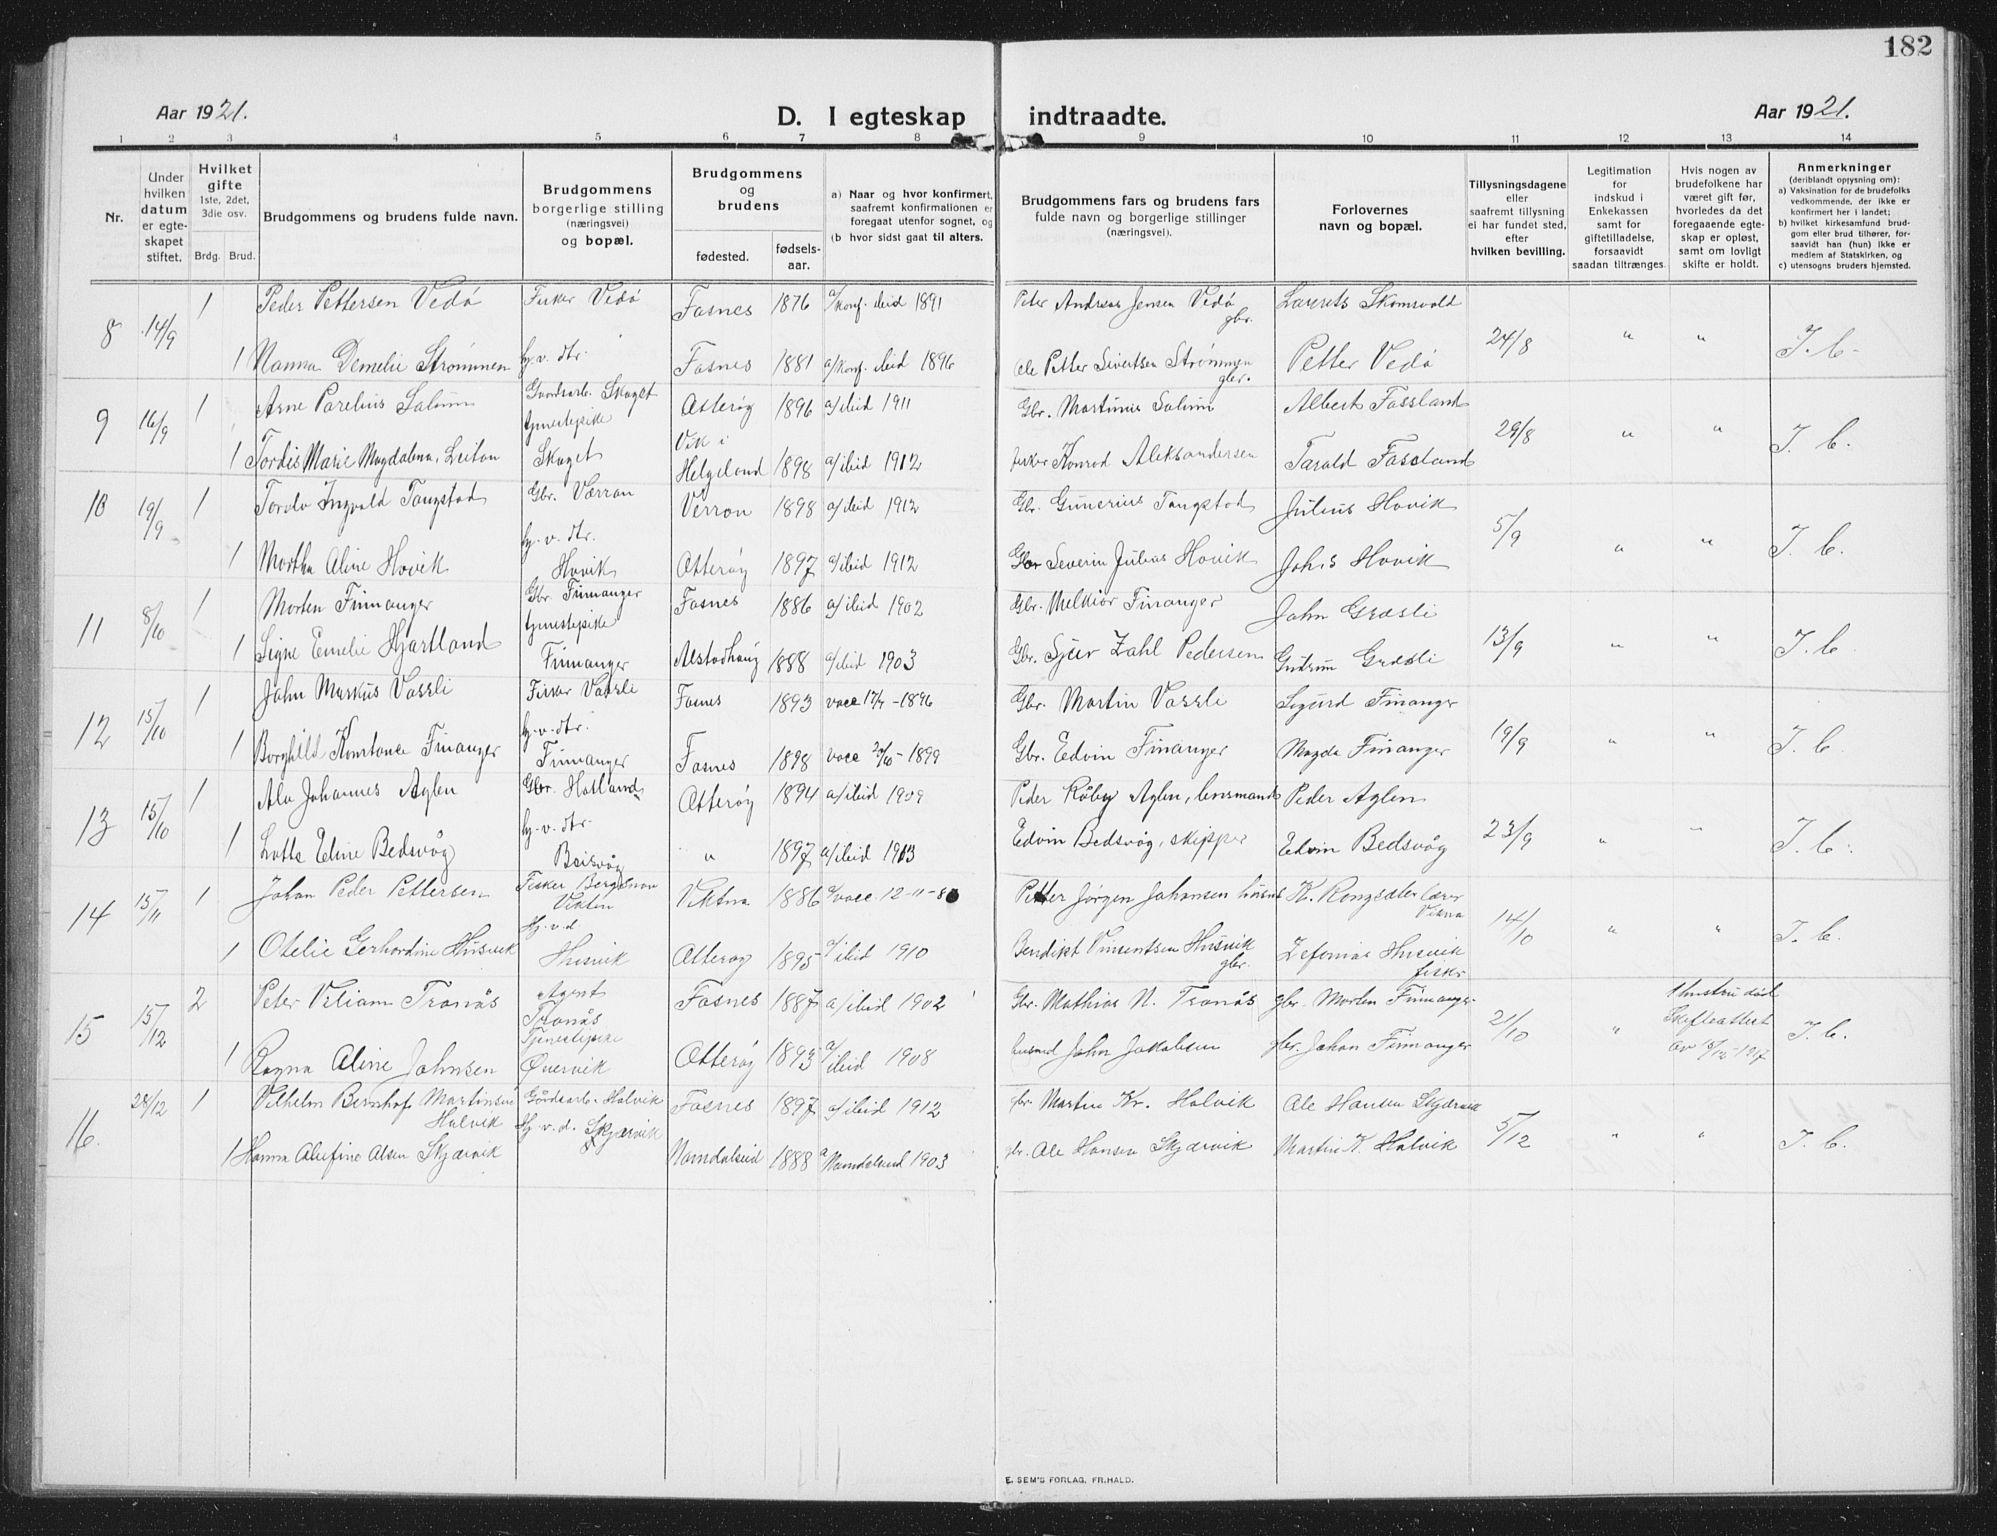 182
Aar 1921.
D. I egteskap indtraadte.
Aar 1921.
1 2 3 4 5 6 7 8 9 10 11 12 13 14
Nr.
Under hvilken datum er egteskapet stiftet.
Hvilket gifte 1ste, 2det, 3die osv.
Brdg. Brud.
Brudgommens og brudens fulde navn.
Brudgommens borgerlige stilling (næringsvei) og bopæl.
Brudgommens og brudens
fødested.
fødsels-aar.
a) Naar og hvor konfirmert, saafremt konfirmationen er foregaat utenfor sognet, og
(b hvor sidst gaat til alters.
Brudgommens fars og brudens fars fulde navn og borgerlige stillinger (næringsvei).
Forlovernes navn og bopæl.
Tillysningsdagene eller saafremt tillysning ei har fundet sted, efter hvilken bevilling.
Legitimation for indskud i Enkekassen samt for giftetilladelse, forsaavidt saadan tiltrænges.
Hvis nogen av brudefolkene har været gift før, hvorledes da det foregaaende egteskap er opløst, samt om lovligt skifte er holdt.
Anmerkninger
(deriblandt opysning om):
a) Vaksination for de brudefolks vedkommende, der ikke er konfirmert her i landet;
b) hvilket kirkesamfund brudgom eller brud tilhører, forsaavidt han (hun) ikke er medlem af Statskirken, og
c) utensogns bruders hjemsted.
8 14/9 1 Peder Pettersen Vedø Fisker Vedø Fosnes 1876 a/konf. ibid 1891 Peter Andreas Jensen Vedø gbr. Laurits Skomsvold 24/8 " " I. C.
1 Nanna Demelie Strømmen hj. v. dtr. Fosnes 1881 a/konf. ibid 1896 Ole Petter Sivertsen Strømmen gbr. Petter Vedø
9 16/9 1 Arne Parelius Salum Gaardsarb. Skaget Otterøy 1896 a/ibid 1911 Gbr. Martinus Salum Albert Fossland 29/8 " " I. C.
1 Tordis Marie Magdalena Leiton tjenestepike Skaget Vik i Helgeland 1898 a/ibid 1912 fisker Konrad Aleksandersen Tarald Fossland
10 19/9 1 Tordo Ingvald Tangstad Gbr. Værran Verran 1898 a/ibid 1912 Gbr. Gunerius Tangstad Julius Hovik 5/9 " " I. C.
1 Martha Aline Hovik hj. v. dtr. Hovik Otterøy 1897 a/ibid 1912 Gbr Severin Julius Hovik Johs Hovik
11 8/10 1 Morten Finnanger Gbr. Finnanger Fosnes 1886 a/ibid 1902 Gbr. Melkior Finanger John Græsli 13/9 " " I. C.
1 Signe Emelie Hjartland tjenestepike Finnanger Alstadhaug 1888 a/ibid 1903 Gbr. Sjur Zahl Pedersen Gudrun Græsli
12 15/10 1 John Markus Vassli Fisker Vassli Fosnes 1893 vacc 17/7-1896 Gbr. Martin Vassli Sigurd Finanger 19/9 " " I. C.
1 Borghild Konstance Finanger hj. v. dtr. Finnanger Fosnes 1898 vacc 20/10-1899 Gbr. Edvin Finanger Magda Finanger
13 15/10 1 Ala Johannes Aglen Gbr. Hotland Otterøy 1894 a/ibid 1909 Peder Røby Aglen, lensmand Peder Aglen 23/9 " " I. C.
1 Lotte Eline Bedsvåg hj. v. dtr. Beisvåg " 1897 a/ibid 1913 Edvin Bedsvåg, skipper Edvin Bedsvåg
14 15/11 1 Johan Peder Pettersen Fisker Bergsnov Vikten Viktna 1886 a/vacc. 12-11-8 Petter Jørgen Johansen husm K. Rongsdter lærer Vikna 14/10 " " I. C.
1 Otelie Gerhardine Husvik Hj. v. d Husvik Otterøy 1895 a/ibid 1910 Bendikt Vinsentsen Husvik gbr. Zefanias Husvik fisker
15 15/12 2 Peter Viliam Tranås Agent Tranås Fosnes 1887 a/ibid 1902 Gbr. Mathias N. Tranås gbr. Morten Finnanger 21/10 " 1 hustru død Skifteattest av 18/12-1917 I. C.
1 Ragna Aline Johnsen Tjenestepike Øvervik Otterøy 1893 a/ibid 1908 husmd John Jakobsen gbr. Johan Finnanger
16. 28/12 1 Vilhelm Bernhof Martinsen Halvik Gårdsarb. Halvik Fosnes 1897 a/ibid 1912 gbr. Martin Kr. Halvik Ole Hansen Skjærvik 5/12 " " I. C.
1 Hanna Olufine Olsen Skjærvik Hj. v. d. Skjærvik Namdalseid 1888 a Namdalseid 1903 gbr. Ole Hansen Skjærvik Martin K. Halvik
E. SEM'S FORLAG, FR.HALD.